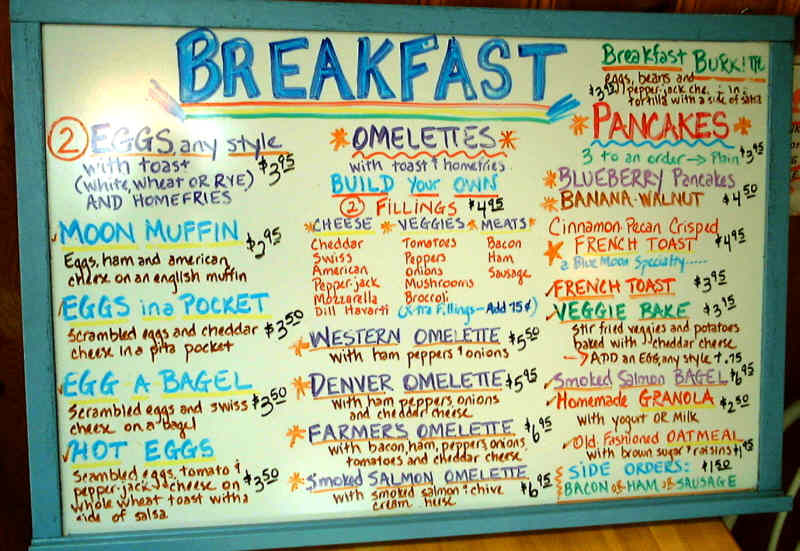 BREAKFAST
2 EGGS any style
with toast $3.95
(White, Wheat OR RYE)
AND HOMEFRIES
MOON MUFFIN $2.95
Eggs, ham and american
cheese on an english muffin
EGGS in a POCKET
Scrambled eggs and cheddar $3.50
cheese in a pita pocket
EGG A BAGEL
Scrambled eggs and swiss $3.50
cheese on a bagel
HOT EGGS
Scambled eggs, tomato &
pepper-jack cheese on $3.50
whole wheat toast with a
side of salsa
OMELETTES
with toast & homefries
BUILD your OWN
2 FILLINGS $4.95
CHEESE VEGGIES MEATS
Cheddar Tomatoes Bacon
Swiss Peppers Ham
American Onions Sausage
Pepper-jack Mushrooms
Mozzarella Broccoli
Dill Havarti (Xtra Fillings - Add 75¢)
WESTERN OMELETTE $5.50
with ham peppers & onions
DENVER OMELETTE $5.95
with ham, peppers, onions
and cheddar cheese
FARMERS OMELETTE $6.95
with bacon, ham, peppers, onions
tomatoes and cheddar cheese
Smoked SALMON OMELETTE
with smoked salmon & chive $6.95
cream
Breakfast
eggs, beans and
$3.95 pepper-jack in
tortilla with a side of salsa
PANCAKES
3 to an order → Plain $3.95
BLUEBERRY Pancakes
BANANA-WALNUT $4.50
Cinnamon-Pecan Crisped
FRENCH TOAST $4.95
a Blue Moon Specialty.....
FRENCH TOAST $3.95
VEGGIE BAKE
Stir fried veggies and potatoes
baked with cheddar cheese
→ ADD an EGG, any style + .75
Smoked Salmon BAGEL $6.95
Homemade GRANOLA $2.50
with yogurt OR Milk
Old Fashioned OATMEAL
with brown sugar & raisins
SIDE ORDERS: $1.50
BACON or HAM or SAUSAGE